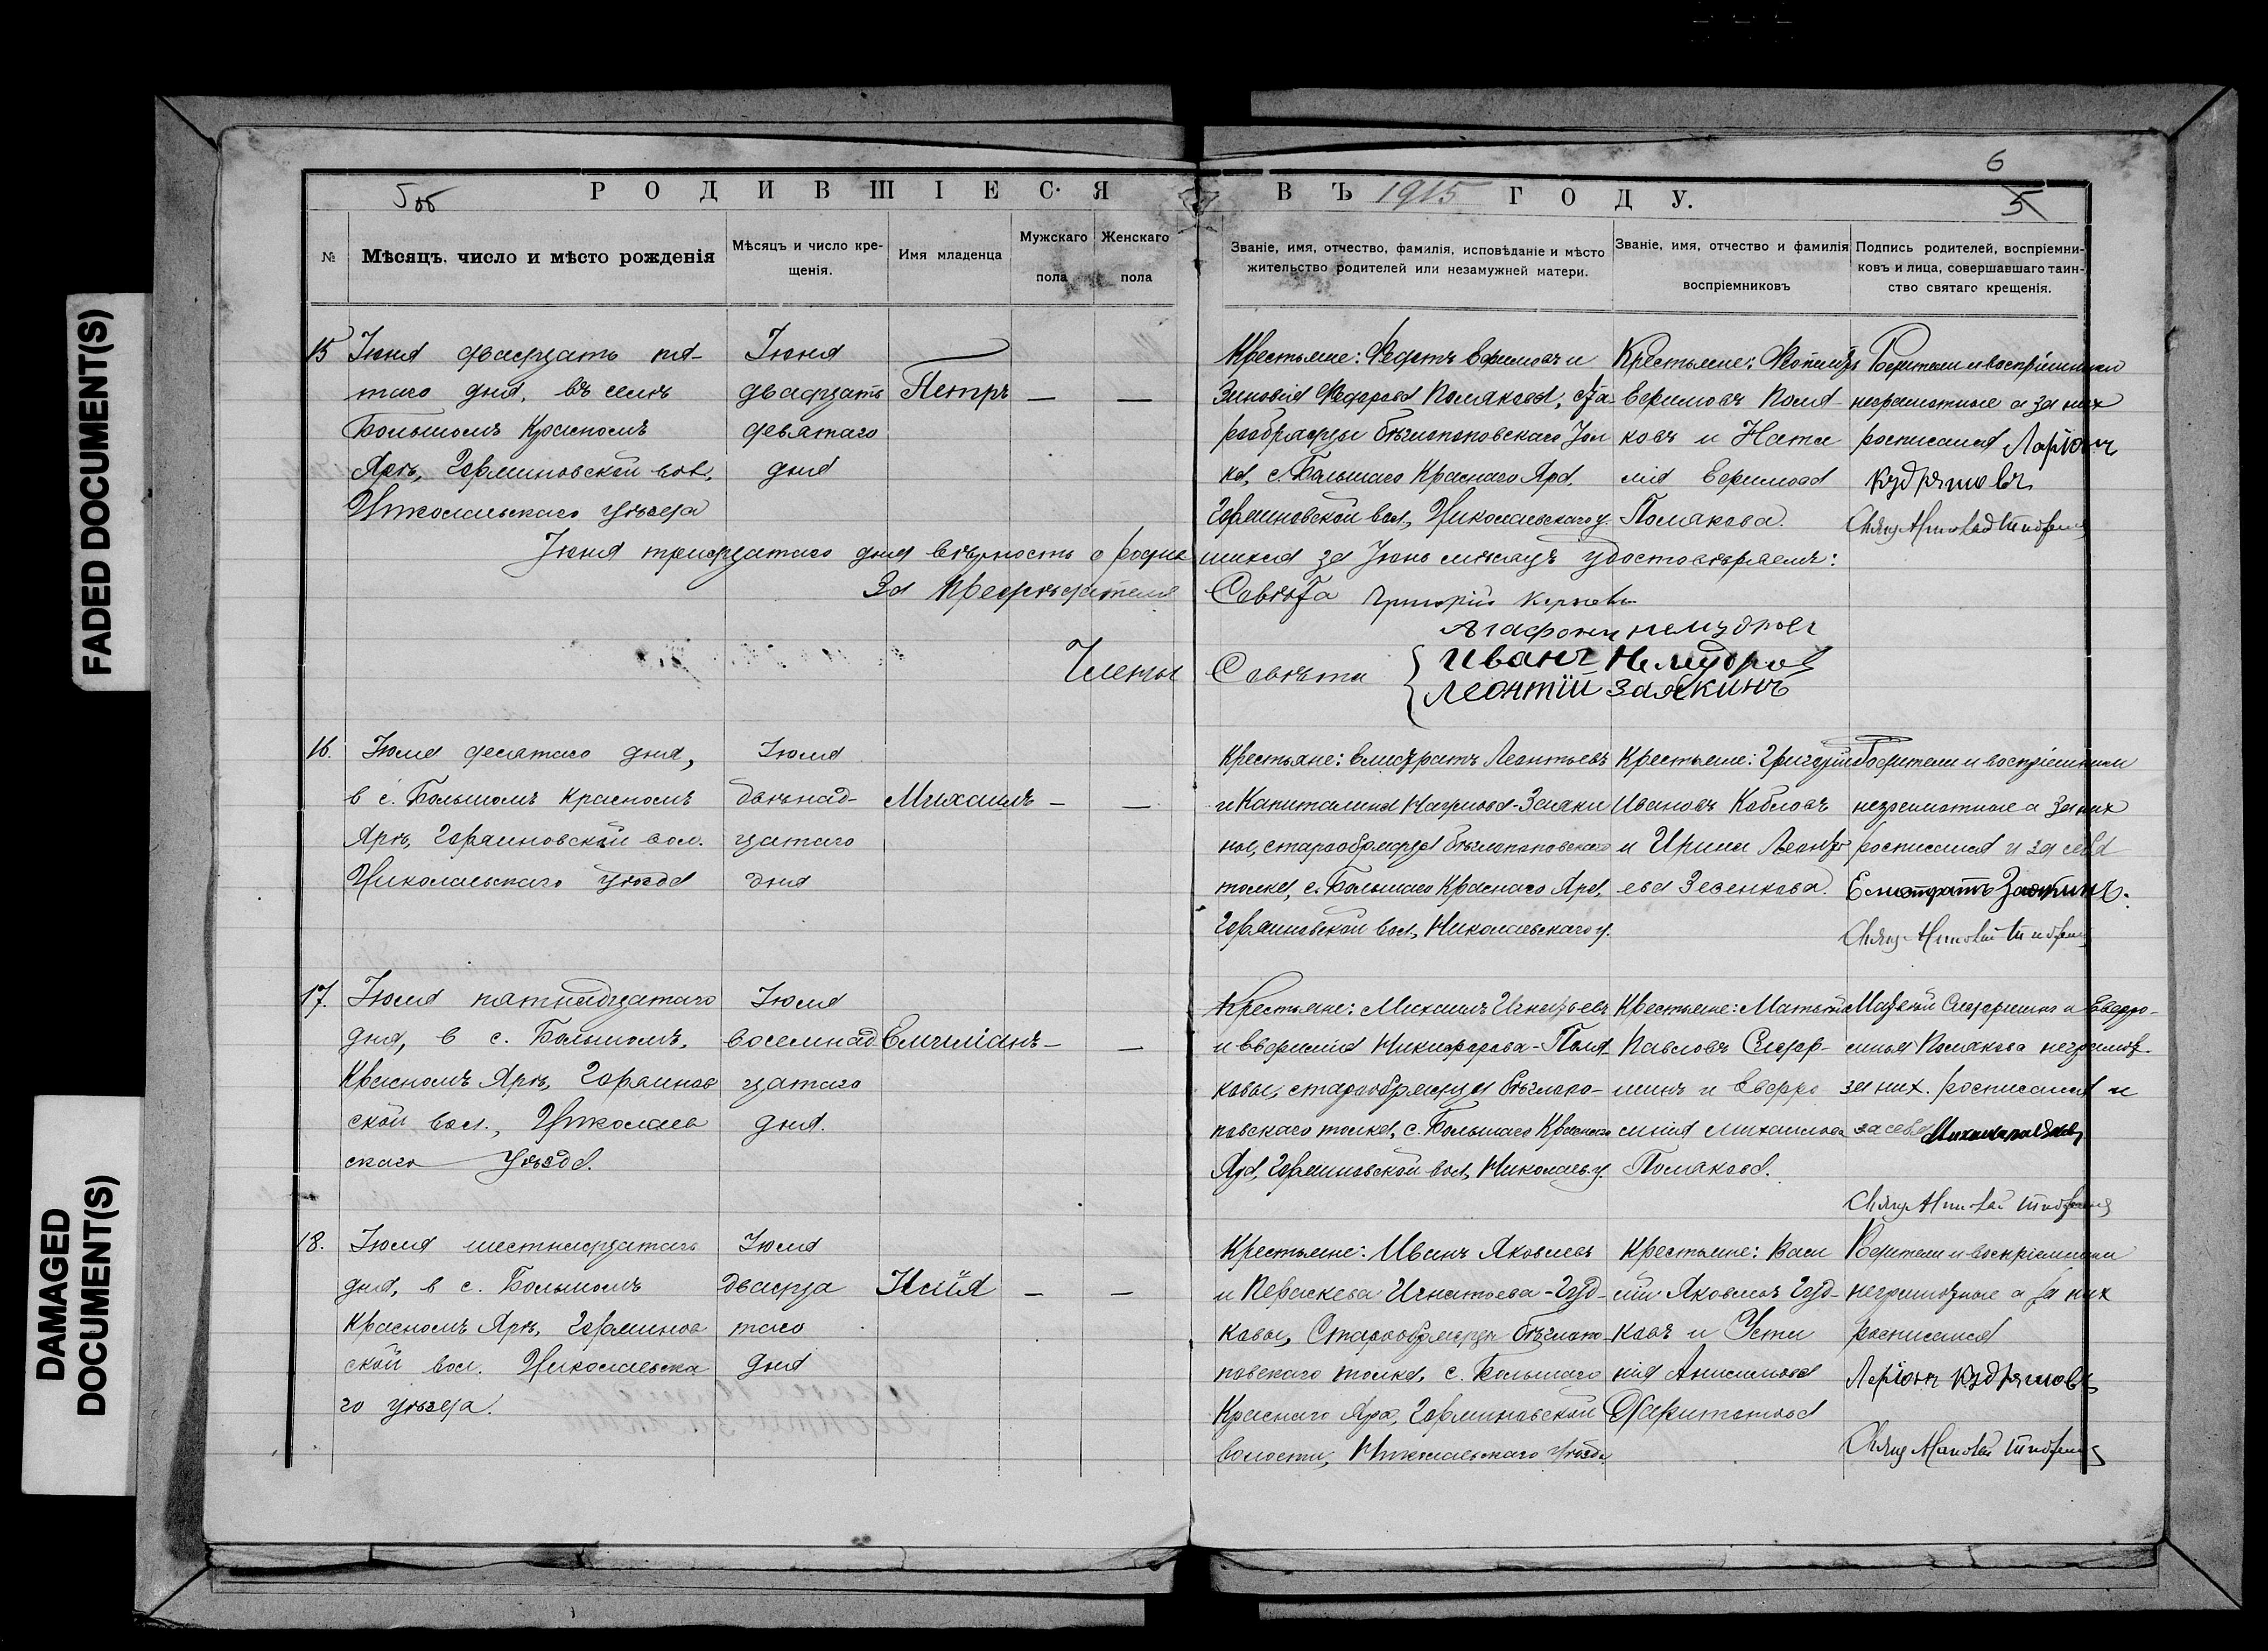 FADED DOCUMENT(S)
DAMAGED
DOCUMENT(S)
6
5
5об
РОДИВШІЕСЯ ВЪ 1915 ГОДУ.
№
Мѣсяцъ, число и мѣсто рожденія
Мѣсяцъ и число кре-
щенія.
Имя младенца
Мужскаго
пола
Женскаго
пола
Званіе, имя, отчество, фамилія, исповѣданіе и мѣсто
жительство родителей или незамужней матери.
Званіе, имя, отчество и фамилія
воспріемниковъ
Подпись родителей, воспріемни-
ковъ и лица, совершавшаго таин-
ство святаго крещенія.
15
Іюня двадцать пя-
таго дня, въ селѣ
Большомъ Красномъ
Ярѣ, Горяиновской вол.
Николаевскаго уѣзда
Іюня
двадцать
девятаго
дня
Петръ
—
—
Крестьяне: Федотъ Ефимовъ и
Зиновія Федорова Полякова, Ста-
рообрядцы бѣглопоповскаго тол
ка, с. Большаго Краснаго Яра,
Горяиновской вол., Николаевскаго у.
Крестьяне:
Ефимовъ Поля-
ковъ и Ната
лія Ефимова
Полякова.
Родители и воспріемники
неграмотные а за них
росписался Ларіонъ
Кудряшовъ
Іюня тридцатаго дня вѣрность о родив
шихся за Іюнь мѣсяцъ удостовѣряемъ:
За Предсѣдателя
Совѣта Григорій
Агафонъ Немудров
Члены
Совѣта
Иванъ Немудров
Леонтій Заякинъ
16.
Іюля десятаго дня,
в с. Большомъ Красномъ
Ярѣ, Горяиновской вол.
Николаевскаго уѣзда
Іюля
двѣнад-
цатаго
дня
Михаилъ
—
—
Крестьяне: Елистратъ Леонтьевъ
и Капиталина Наумова-Заяки
ны, старообрядцы бѣглопоповскаго
толка, с. Большаго Краснаго Яра,
Горяиновской вол., Николаевскаго у.
Крестьяне: Григорій
Ивановъ Кобловъ
и Ирина Леонть
ева Зезенкова.
Родители и воспріемники
неграмотные а за них
росписался и за себя
Елистратъ Заякинъ.
17.
Іюля пятнадцатаго
дня, в с. Большомъ
Красномъ Ярѣ, Горяинов
ской вол., Николаев
скаго уѣзда.
Іюля
восемнад
цатаго
дня.
Емиліанъ
—
—
Крестьяне: Михаилъ Игнатьевъ
и Евфимія Никифорова-Поля-
ковы, старообрядцы бѣглопо-
повскаго толка, с. Большаго Краснаго
Яра, Горяиновской вол., Николаев. у.
Крестьяне: Матвѣй
Павловъ
и Евфро
синія Михайлова
Полякова.
Матвѣй и Евфро-
синья Полякова неграмот.
за них росписался и
за себя
18.
Іюля шестнадцатаго
дня, в с. Большомъ
Красномъ Ярѣ, Горяинов
ской вол. Николаевска
го уѣзда.
Іюля
двадца
таго
дня
—
—
Крестьяне: Иванъ Яковлевъ
и Параскева Игнатьева-Гуд-
ковы, Старообрядцы бѣглопо-
повскаго толка, с. Большаго
Краснаго Яра, Горяиновской
волости, Николаевскаго уѣзда.
Крестьяне: Васи
лій Яковлевъ Гуд-
ковъ и Усти
нія Анисимова
Харитонова
Родители и воспріемники
неграмотные а за них
росписался
Ларіонъ Кудряшовъ